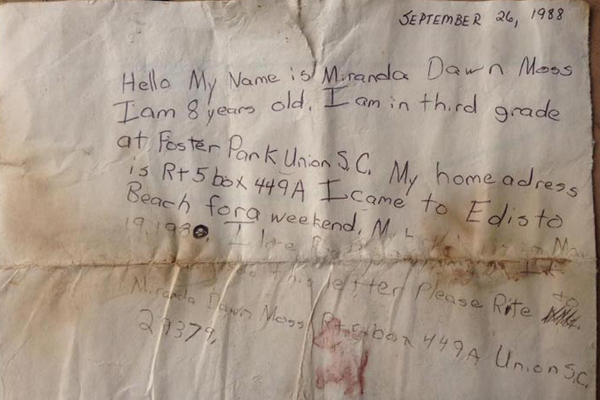 SEPTEMBER 26, 1988
Hello My Name is Miranda Dawn Moss
I am 8 years old. I am in third grade
at Foster Park Union S.C. My home adress
is Rt 5 box 449A I came to Edisto
Beach for a weekend. M
19, 1980. I
this letter Please Rite to
Miranda Dawn Moss Rt 5 box 449A Union S.C.
29379,